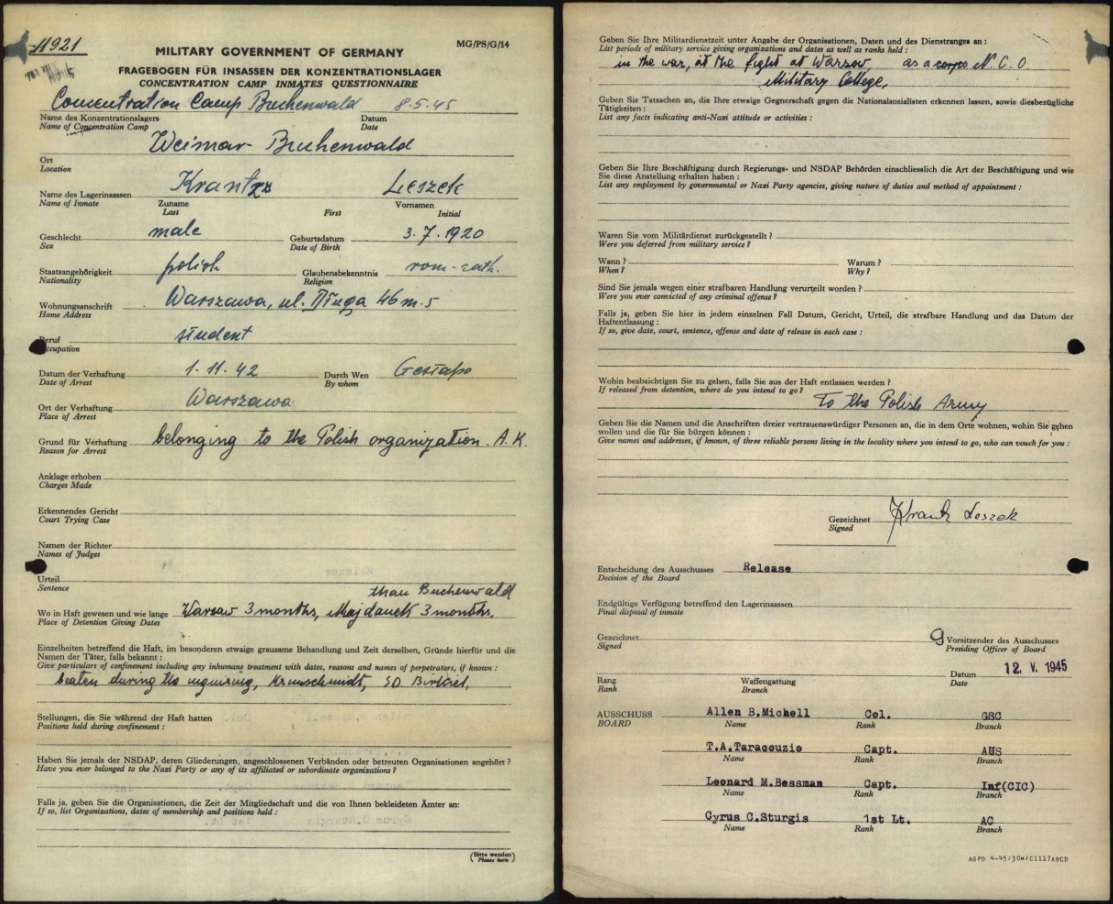 11921
MG/PS/G/14
MILITARY GOVERNMENT OF GERMANY
FRAGEBOGEN FÜR INSASSEN DER KONZENTRATIONSLAGER
CONCENTRATION CAMP INMATES QUESTIONNAIRE
Concentration Camp Buchenwald 8.5.45
Name des Konzentrationslagers Datum
Name of Concentration Camp Date
Weimar-Buchenwald
Ort
Location
Krantz Leszek
Name des Lagerinsassen Zuname Vornamen
Name of Inmate Last First Initial
male 3.7.1920
Geschlecht Geburtsdatum
Sex Date of Birth
polish rom.-cath.
Staatsangehörigkeit Glaubensbekenntnis
Nationality Religion
Warszawa, ul. Długa 46 m. 5
Wohnungsanschrift
Home Address
student
Beruf
Occupation
1.11.42 Gestapo
Datum der Verhaftung Durch Wen
Date of Arrest By whom
Warszawa
Ort der Verhaftung
Place of Arrest
Grund für Verhaftung belonging to the Polish organization. A.K.
Reason for Arrest
Anklage erhoben
Charges Made
Erkennendes Gericht
Court Trying Case
Namen der Richter
Names of Judges
Urteil
Sentence
than Buchenwald
Wo in Haft gewesen und wie lange Warsaw 3 months, Majdanek 3 months.
Place of Detention Giving Dates
Einzelheiten betreffend die Haft, im besonderen etwaige grausame Behandlung und Zeit derselben, Gründe hierfür und die
Namen der Täter, falls bekannt :
Give particulars of confinement including any inhumane treatment with dates, reasons and names of perpetrators, if known :
beaten during the inquiring,
Stellungen, die Sie während der Haft hatten
Positions held during confinement :
Haben Sie jemals der NSDAP, deren Gliederungen, angeschlossenen Verbänden oder betreuten Organisationen angehört ?
Have you ever belonged to the Nazi Party or any of its affiliated or subordinate organizations ?
Falls ja, geben Sie die Organisationen, die Zeit der Mitgliedschaft und die von Ihnen bekleideten Ämter an:
If so, list Organizations, dates of membership and positions held :
(Bitte wenden)
Please turn
Geben Sie Ihre Militärdienstzeit unter Angabe der Organisationen, Daten und des Dienstranges an :
List periods of military service giving organizations and dates as well as ranks held :
in the war, at the fight at Warsaw as a corps N.C.O.
Military College,
Geben Sie Tatsachen an, die Ihre etwaige Gegnerschaft gegen die Nationalsozialisten erkennen lassen, sowie diesbezügliche
Tätigkeiten :
List any facts indicating anti-Nazi attitude or activities :
Geben Sie Ihre Beschäftigung durch Regierungs- und NSDAP Behörden einschliesslich die Art der Beschäftigung und wie
Sie diese Anstellung erhalten haben :
List any employment by governmental or Nazi Party agencies, giving nature of duties and method of appointment :
Waren Sie vom Militärdienst zurückgestellt ?
Were you deferred from military service ?
Wann ? Warum ?
When ? Why ?
Sind Sie jemals wegen einer strafbaren Handlung verurteilt worden ?
Were you ever convicted of any criminal offense ?
Falls ja, geben Sie hier in jedem einzelnen Fall Datum, Gericht, Urteil, die strafbare Handlung und das Datum der
Haftentlassung :
If so, give date, court, sentence, offense and date of release in each case :
Wohin beabsichtigen Sie zu gehen, falls Sie aus der Haft entlassen werden ?
If released from detention, where do you intend to go ?
To the Polish Army
Geben Sie die Namen und die Anschriften dreier vertrauenswürdiger Personen an, die in dem Orte wohnen, wohin Sie gehen
wollen und die für Sie bürgen können :
Give names and addresses, if known, of three reliable persons living in the locality where you intend to go, who can vouch for you :
Gezeichnet Krantz Leszek
Signed
Entscheidung des Ausschusses Release
Decision of the Board
Endgültige Verfügung betreffend den Lagerinsassen
Final disposal of inmate
Gezeichnet Vorsitzender des Ausschusses
Signed Presiding Officer of Board
12. V. 1945
Datum
Date
Rang Waffengattung
Rank Branch
AUSSCHUSS Allen B.Michell Col. GSC
BOARD Name Rank Branch
T.A.Taracouzio Capt. AUS
Name Rank Branch
Leonard M.Bessman Capt. Inf(CIC)
Name Rank Branch
Cyrus C.Sturgis 1st Lt. AC
Name Rank Branch
AGPD 4-45/30M/C1117ABCD